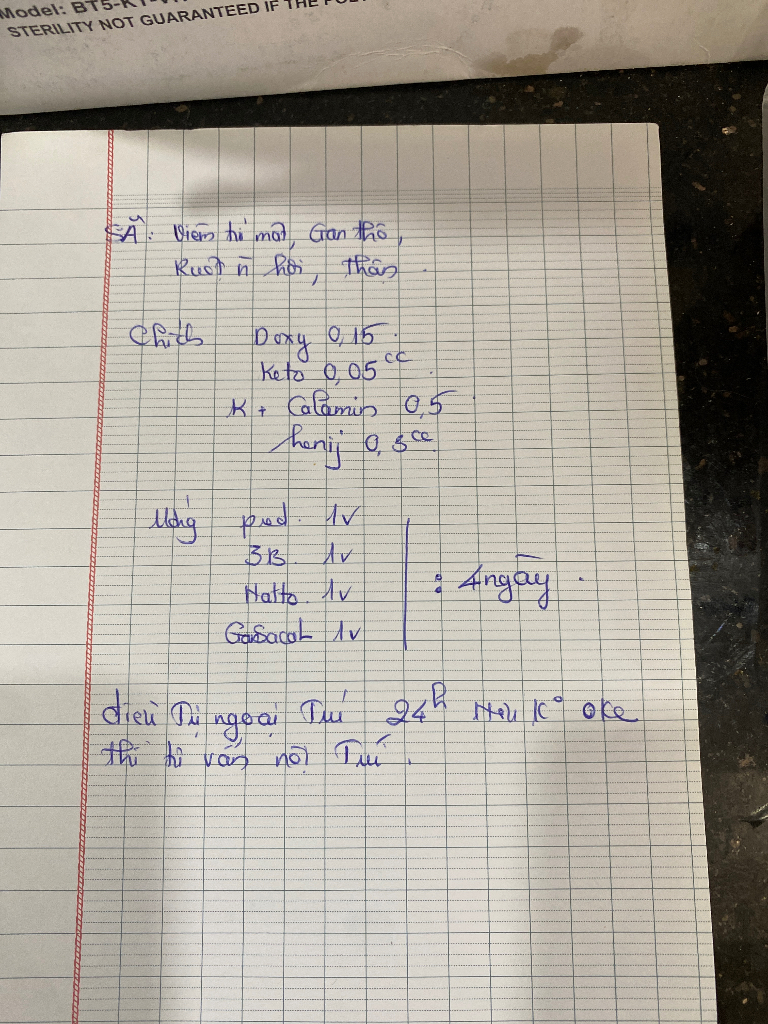 Model: BT5-KT-
STERILITY NOT GUARANTEED IF THE
SÂ: Viêm túi mật, Gan thô,
Ruột ít hơi, thận.
Chích Doxy 0,15.
Keto 0,05cc.
K + Catamin 0,5
0,3cc
Uống pred. 1v
3B 1v
Natto. 1v
1v
: 4 ngày.
điều Trị ngoại Trú 24h Nếu Ko oke
thì tư vấn nội Trú.